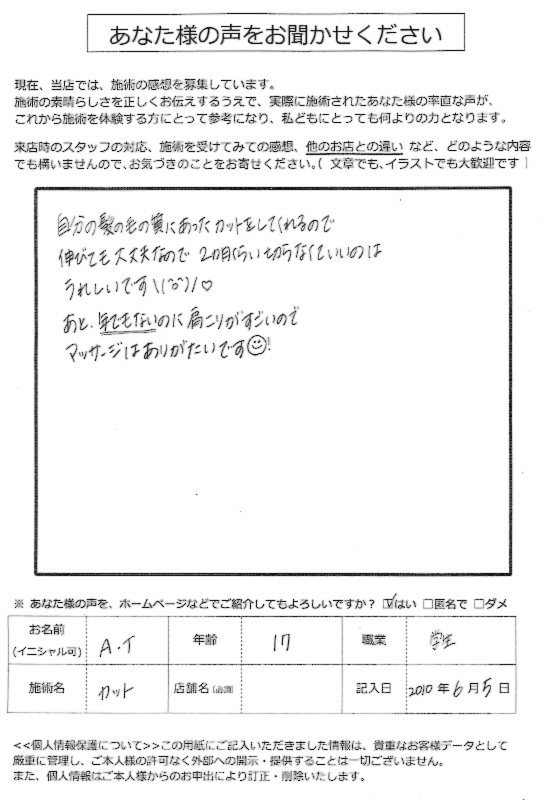 あなた様の声をお聞かせください
現在、当店では、施術の感想を募集しています。
施術の素晴らしさを正しくお伝えするうえで、実際に施術されたあなた様の率直な声が、
これから施術を体験する方にとって参考になり、私どもにとっても何よりの力となります。
来店時のスタッフの対応、施術を受けてみての感想、他のお店との違い など、どのような内容
でも構いませんので、お気づきのことをお寄せください。( 文章でも、イラストでも大歓迎です )
自分の髪の毛の質にあったカットをしてくれるので
伸びても大丈夫なので 2か月くらい切らなくていいのは
うれしいです\(^o^)/♡
あと、年でもないのに肩こりがすごいので
マッサージはありがたいです☺!
※ あなた様の声を、ホームページなどでご紹介してもよろしいですか? ☑はい □匿名で □ダメ
お名前
(イニシャル可) A.T 年齢 17 職業 学生
施術名 カット 店舗名 記入日 2010 年 6 月 5 日
<<個人情報保護について>>この用紙にご記入いただきました情報は、貴重なお客様データとして
厳重に管理し、ご本人様の許可なく外部への開示・提供することは一切ございません。
また、個人情報はご本人様からのお申出により訂正・削除いたします。